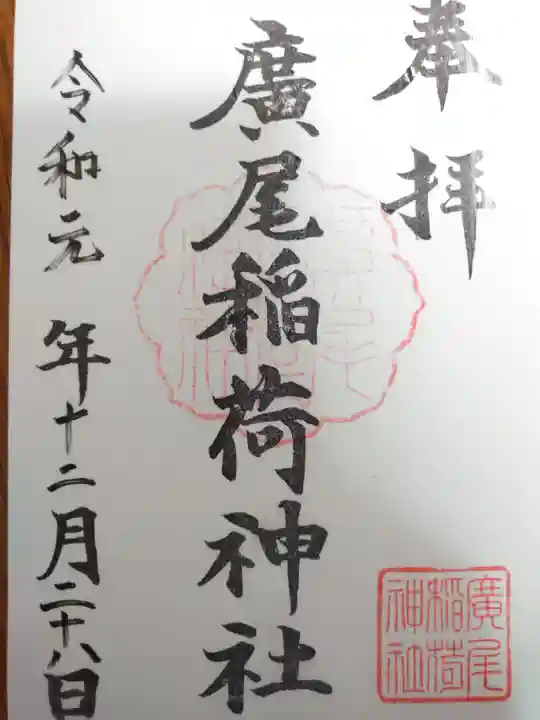 奉拝
廣尾稲荷神社
令和元年十二月二十八日
廣尾
稲荷
神社